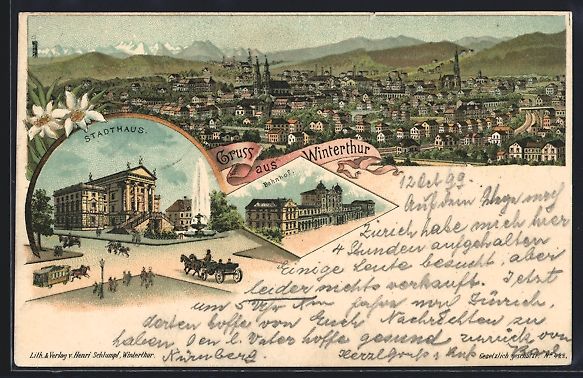 STADTHAUS.
Gruss aus Winterthur
Bahnhof.
12 Oct 99
Auf dem Wege nach
Zürich habe mich hier
4 Stunden aufgehalten
Einige Leute besucht, aber
leider nichts verkauft. Jetzt
um 5 Uhr nach Zürich,
dorten hoffe von Euch Nachrichten zu
haben. Den l. Vater hoffe gesund zurück von
Nürnberg. Herzl. Gruss & Kuss
Lith. & Verlag v. Henri Schlumpf, Winterthur.
Gesetzlich geschützt.